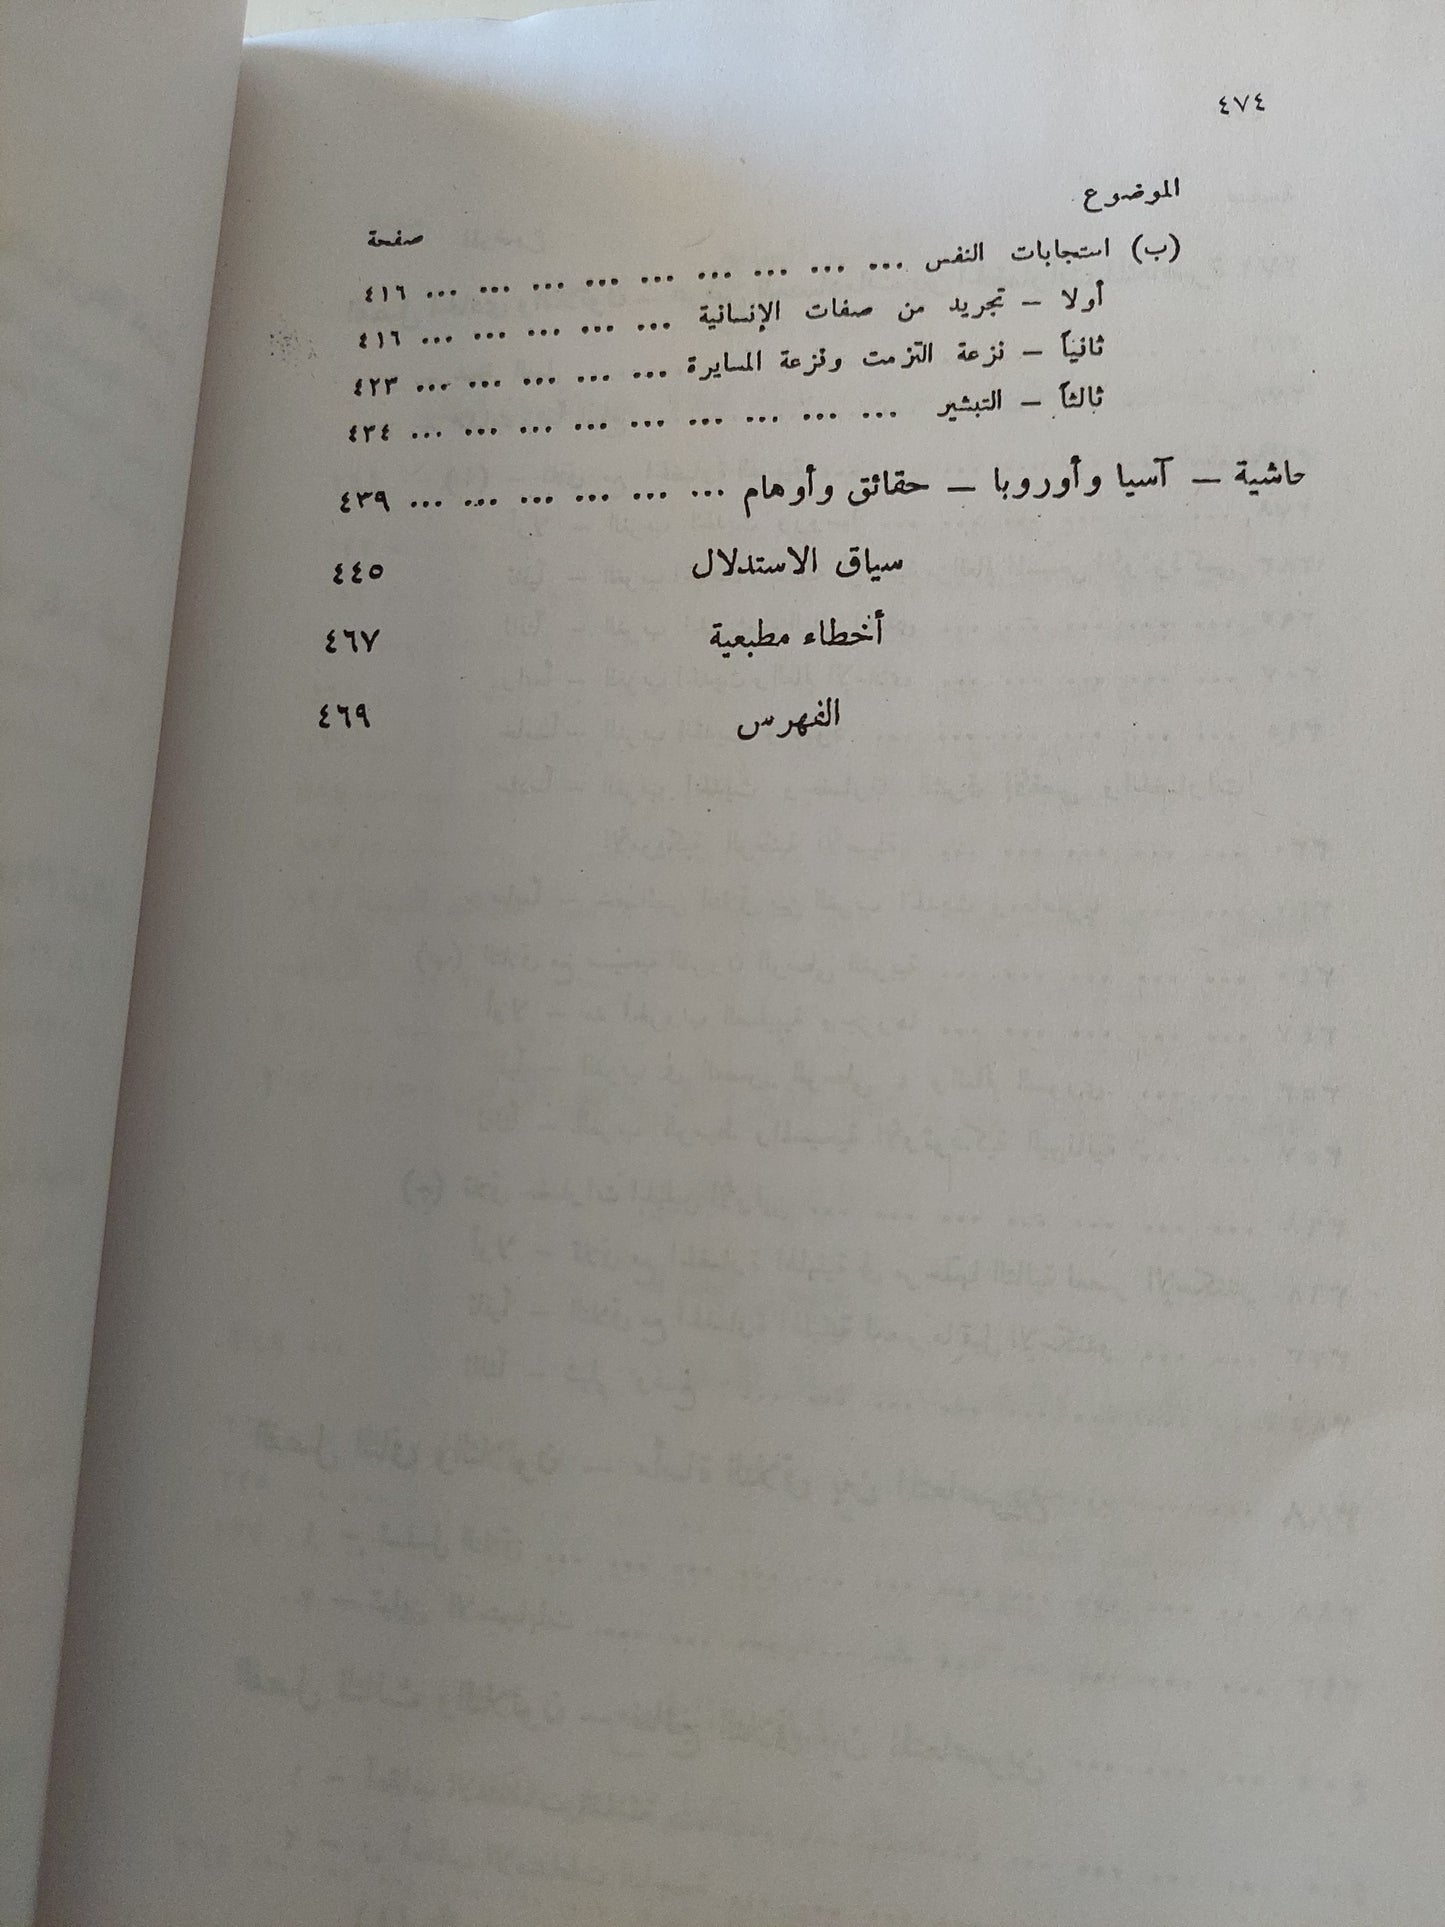 ٤٧٤
الموضوع
صفحة
(ب) استجابات النفس ... ... ... ... ... ... ... ... ... ٤١٦
أولا – تجريد من صفات الإنسانية ... ... ... ... ... ٤١٦
ثانياً – نزعة التزمت ونزعة المسايرة ... ... ... ... ... ٤٢٣
ثالثاً – التبشير ... ... ... ... ... ... ... ... ... ٤٣٤
حاشية – آسيا وأوروبا – حقائق وأوهام ... ... ... ... ... ... ٤٣٩
سياق الاستدلال ٤٤٥
أخطاء مطبعية ٤٦٧
الفهرس ٤٦٩